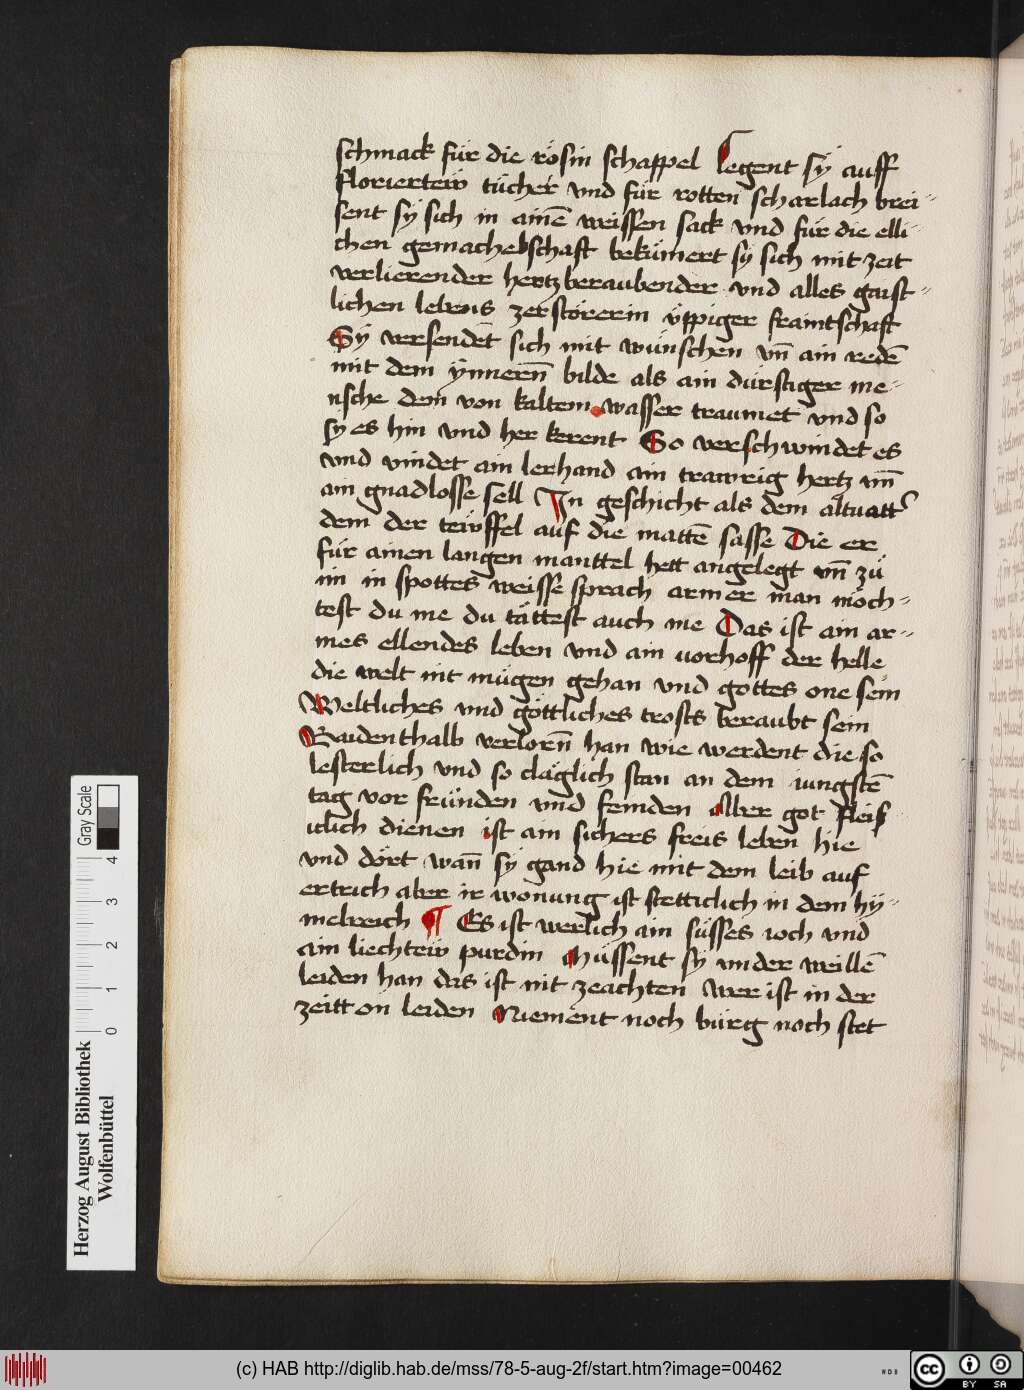 schmack für die rösin schappel legent sÿ auff
florierteẅ tücher vnd für rotten scharlach brei-
sent sÿ sich in ainē weissen sack vnd für die elli-
chen gemachelschaft bekümert sÿ sich mit zeit
verlierender hertzberaubender vnd alles gaist-
lichen lebens zerstörerin üppiger fraintschaft
Sÿ versendēt sich mit wünschen vn̄ ain redē
mit dem ÿnnerñ bilde als ain dürstiger me-
nsche dem von kaltem wasser traumet vnd so
sy es hin vnd her kerent So verschwindet es
vnd vindet ain lerhand ain trawrig hertz vnn̄
ain gnadlosse sell In geschicht als dem altuatt
dem der teẅffel auf die mattē sasse Die er
für ainen langen manttel hett angelegt vn̄ zü
im in spottes weisse sprach armer man möch-
test du me du tättest auch me Das ist ain ar-
mes ellendes leben vnd ain vorhoff der helle
die welt nit mügen gehan vnd gottes one sein
Weltliches vnd göttliches trosts beraubt sein
Baidenthalb verlorn̄ han wie werdent die so
lesterlich vnd so cläglich stan an dem iungstē
tag vor freünden vnd feinden Aber got fleis
iclich dienen ist ain sichers freis leben hie
vnd dört wan̄ sÿ gand hie mit dem leib auf
ertrich aber ir wonung ist stetticlich in dem hÿ-
melreich ¶ Es ist werlich ain süsses ioch vnd
ain liechteẅ purdin Müssent sÿ vnder weillē
leiden han das ist nit zeachten Wer ist in der
zeitt on leiden Niement noch bürg noch stet
Gray Scale
4
3
2
1
0
Herzog August Bibliothek
Wolfenbüttel
(c) HAB http://diglib.hab.de/mss/78-5-aug-2f/start.htm?image=00462
cc
BY SA